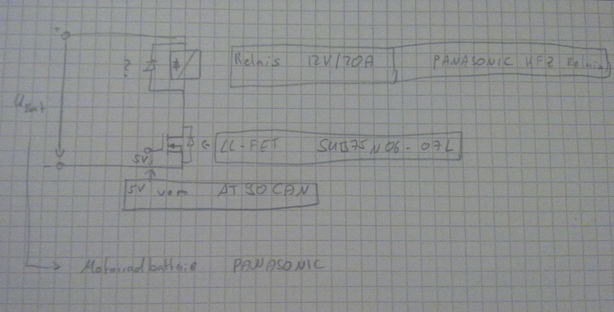 +
?
Relais 12V/70A PANASONIC HFZ Relais
U_Batt
5V
G LL-FET SUB75N06-07L
-
5V vom AT90CAN
Motorradbatterie PANASONIC